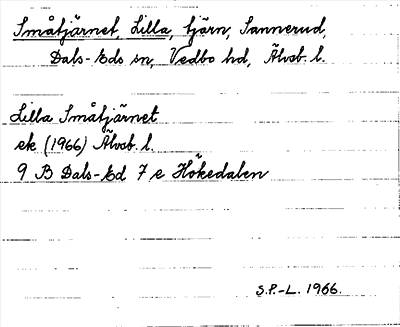 Småtjärnet, Lilla, tjärn, Sannerud,
Dals-Eds sn, Vedbo hd, Älvsb. l.
Lilla Småtjärnet
ek (1966) Älvsb. l.
9 B Dals-Ed 7 e Hökedalen
S.P.-L. 1966.